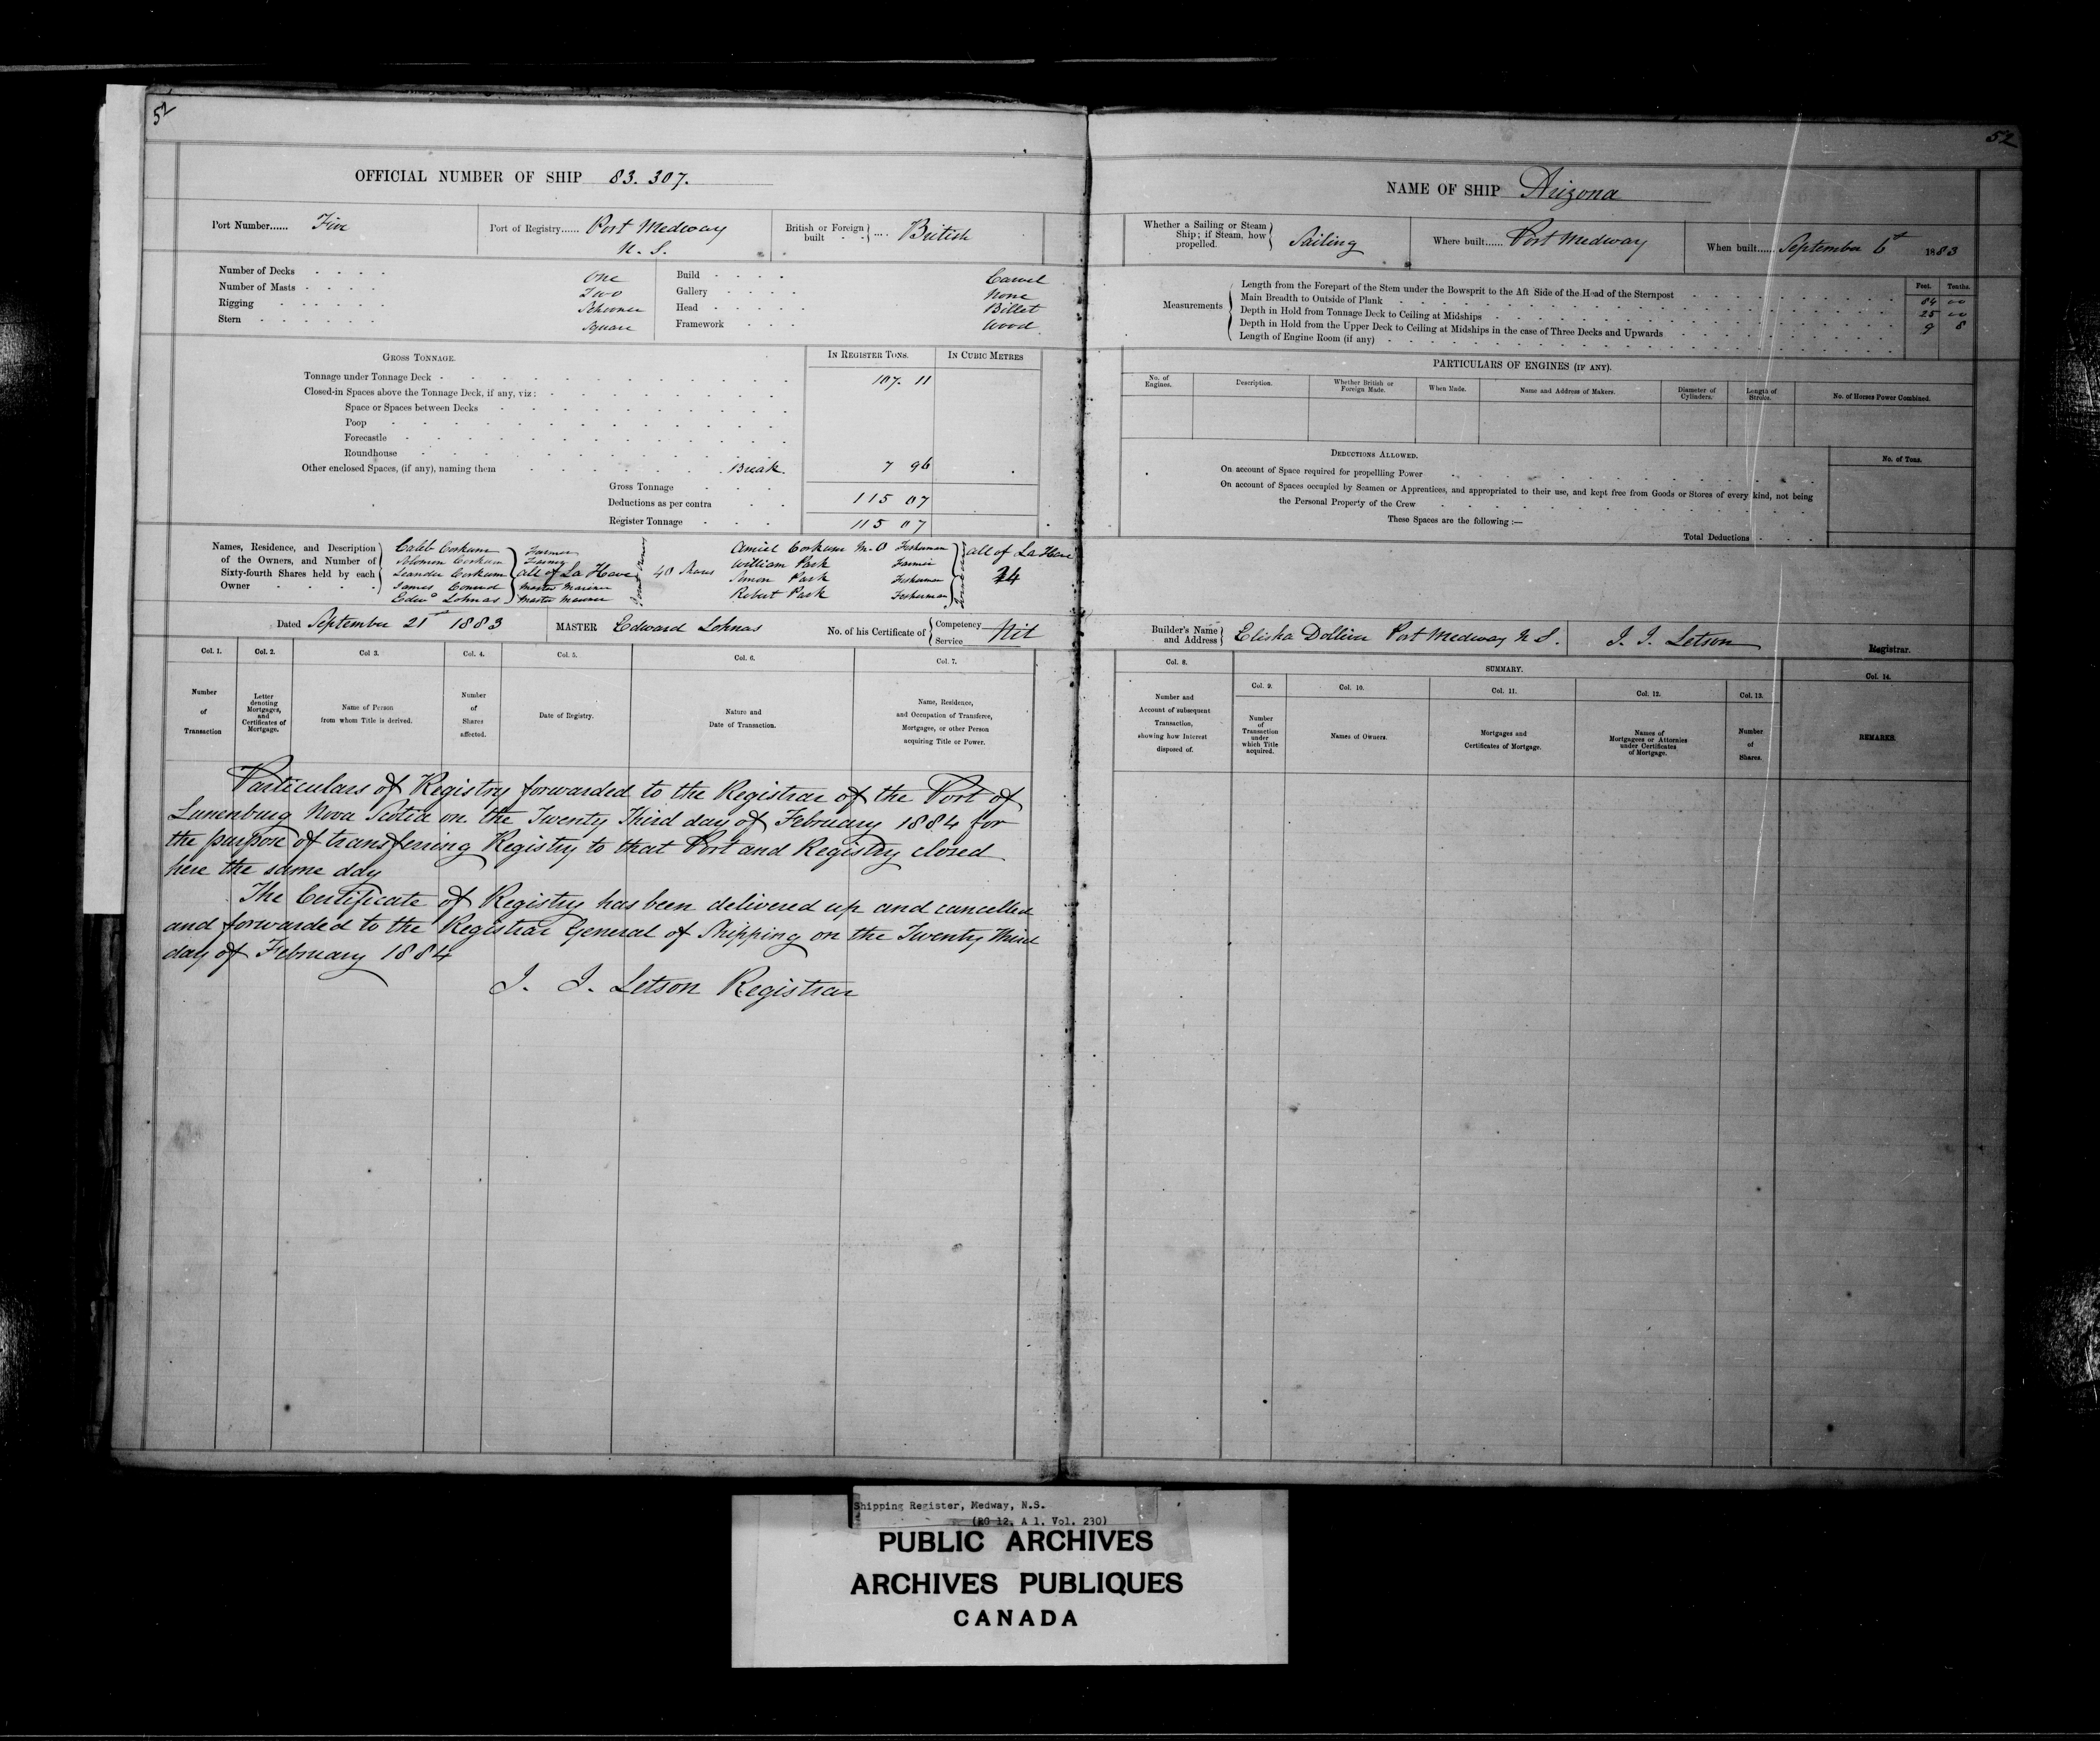 52
OFFICIAL NUMBER OF SHIP 83.307.
Port Number...... Five
Port of Registry...... Port Medway
N. S.
British or Foreign built .... British
Number of Decks One
Number of Masts Two
Rigging Schooner
Stern Square
Build Carvel
Gallery None
Head Billet
Framework Wood
GROSS TONNAGE.
IN REGISTER TONS.
IN CUBIC METRES
Tonnage under Tonnage Deck 107. 11
Closed-in Spaces above the Tonnage Deck, if any, viz:
Space or Spaces between Decks
Poop
Forecastle
Roundhouse
Other enclosed Spaces, (if any), naming them Break 7 96
Gross Tonnage 115 07
Deductions as per contra
Register Tonnage 115 07
Names, Residence, and Description
of the Owners, and Number of
Sixty-fourth Shares held by each
Owner
Caleb Corkum Farmer
Solomon Corkum Farmer
Leander Corkum all of La Have
James Conrad Master Mariner
Edwd Lohnas Master Mariner
40 Shares
Amiel Corkum M.O Fisherman
William Park Farmer
Amon Park Fisherman
Robert Park Fisherman
all of La Have
24
Dated September 21st 1883
MASTER Edward Lohnas
No. of his Certificate of Competency Service Nil
Col. 1.
Number
of
Transaction
Col. 2.
Letter
denoting
Mortgages,
and
Certificates of
Mortgage.
Col 3.
Name of Person
from whom Title is derived.
Col. 4.
Number
of
Shares
affected.
Col. 5.
Date of Registry.
Col. 6.
Nature and
Date of Transaction.
Col. 7.
Name, Residence,
and Occupation of Transferee,
Mortgagee, or other Person
acquiring Title or Power.
Particulars of Registry forwarded to the Registrar of the Port of
Lunenburg Nova Scotia on the Twenty Third day of February 1884 for
the purpose of transferring Registry to that Port and Registry closed
here the same day
The Certificate of Registry has been delivered up and cancelled
and forwarded to the Registrar General of Shipping on the Twenty Third
day of February 1884
J. J. Letson Registrar
52
NAME OF SHIP Arizona
Whether a Sailing or Steam
Ship; if Steam, how
propelled.
Sailing
Where built...... Port Medway
When built...... September 6th 1883
Measurements
Feet. Tenths.
Length from the Forepart of the Stem under the Bowsprit to the Aft Side of the Head of the Sternpost 84 00
Main Breadth to Outside of Plank 25 00
Depth in Hold from Tonnage Deck to Ceiling at Midships 9 8
Depth in Hold from the Upper Deck to Ceiling at Midships in the case of Three Decks and Upwards
Length of Engine Room (if any)
PARTICULARS OF ENGINES (IF ANY).
No. of
Engines.
Description.
Whether British or
Foreign Made.
When Made.
Name and Address of Makers.
Diameter of
Cylinders.
Length of
Stroke.
No. of Horses Power Combined.
DEDUCTIONS ALLOWED.
No. of Tons.
On account of Space required for propelling Power
On account of Spaces occupied by Seamen or Apprentices, and appropriated to their use, and kept free from Goods or Stores of every kind, not being
the Personal Property of the Crew
These Spaces are the following :—
Total Deductions
Builder's Name
and Address
Elisha Dolliver Port Medway N S.
J. J. Letson
Registrar.
Col. 8.
Number and
Account of subsequent
Transaction,
showing how Interest
disposed of.
SUMMARY.
Col. 9.
Number
of
Transaction
under
which Title
acquired.
Col. 10.
Names of Owners.
Col. 11.
Mortgages and
Certificates of Mortgage.
Col. 12.
Names of
Mortgagees or Attornies
under Certificates
of Mortgage.
Col. 13.
Number
of
Shares.
Col. 14.
REMARKS.
Shipping Register, Medway, N.S.
(RG 12, A 1. Vol. 230)
PUBLIC ARCHIVES
ARCHIVES PUBLIQUES
CANADA